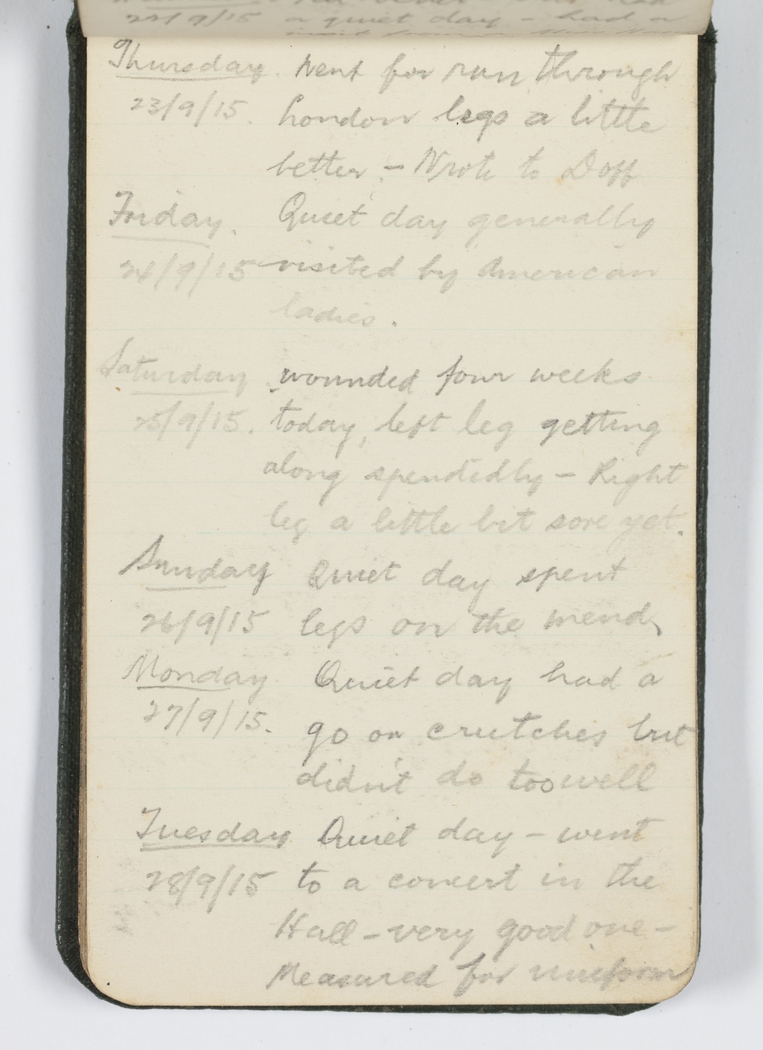 22/9/15 a quiet day - had a
Thursday. Went for run through
23/9/15. London legs a little
better. - Wrote to Doff
Friday. Quiet day generally
24/9/15 visited by American
ladies.
Saturday wounded four weeks
25/9/15. today, left leg getting
along spendedly - Right
leg a little bit sore yet.
Sunday Quiet day spent
26/9/15 legs on the mend,
Monday Quiet day had a
27/9/15. go on crutches but
didn't do too well
Tuesday Quiet day - went
28/9/15 to a concert in the
Hall - very good one -
Measured for uniform